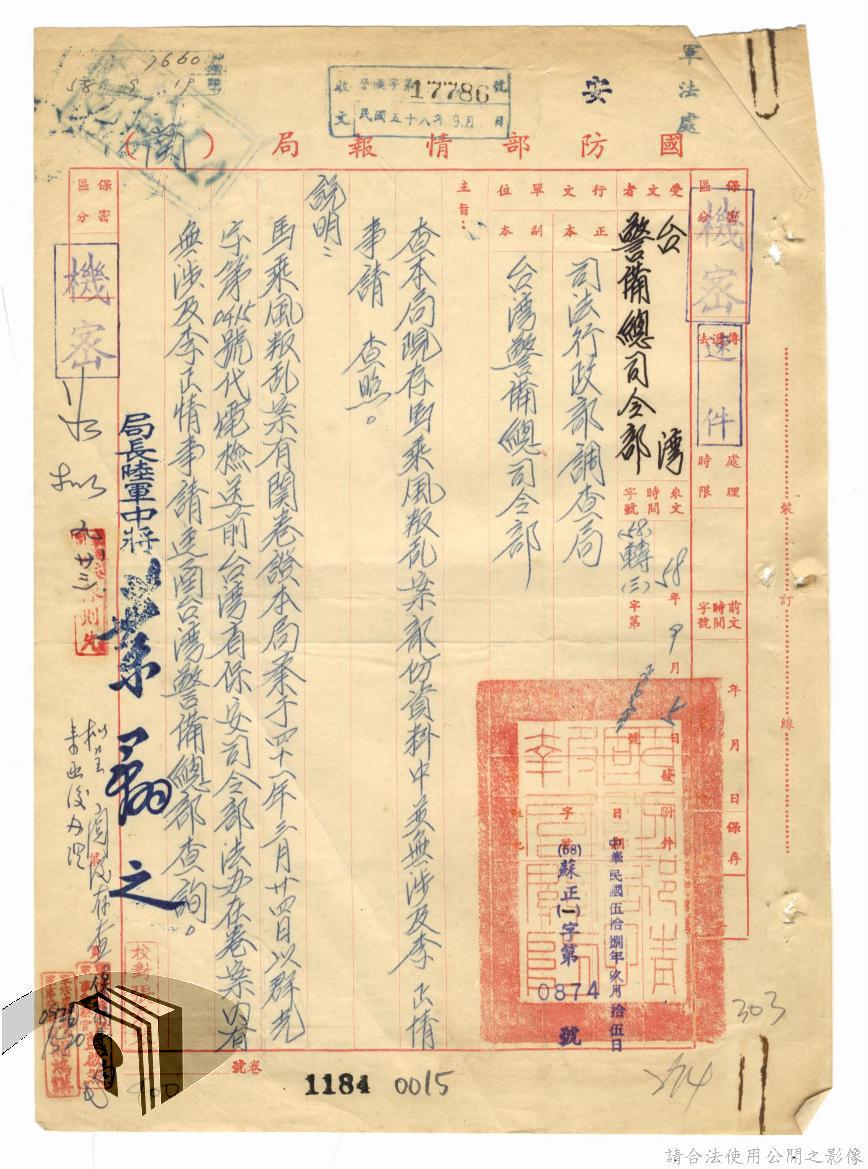 軍法處
安
收文 警機字第17786號
民國五十八年9月 日
7660
58 9 19
國防部情報局（函）
保密區分
機密
傳遞法
速件
處理時限
前文時間字號
年 月 日
保存
受文者
台灣警備總司令部
來文時間字號
58年9月5日
(58)轉(三)字第 號
行文單位
正本
司法行政部調查局
副本
台灣警備總司令部
發
附件
日期
字號
中華民國伍拾捌年玖月拾伍日
(58)蘇正(一)字第0874號
主旨：
查本局現存馬乘風叛乱案部份資料中並無涉及李正情
事請 查照。
說明：
馬乘風叛乱案有関卷證本局業于四十一年三月廿四日以群光
字第0415號代電檢送前台灣省保安司令部法办在卷案內有
無涉及李正情事請逕函台灣警備總部查詢。
局長陸軍中將葉翔之
保密區分
機密
如拟
九、廿三、
校對
卷號
1184 0015
303
裝訂線
請合法使用公開之影像